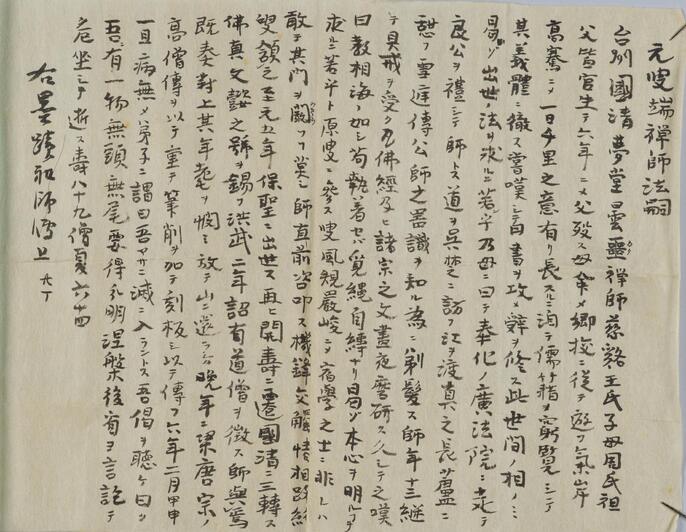 元叟端禅師法嗣
台州國清夢堂曇噩禅師慈谿王氏子母周氏祖
父皆官生テ六年ニメ父殁ス母命メ郷校ニ従テ遊フ氣岸
高騫ニメ一日千里之意有リ長スルニ洎テ儒籍ヲ窮覧シテ
其義體ニ徹ス嘗嘆シテ曰書ヲ攻メ辞ヲ修ス此世間ノ相ノミ
曷ソ出世ノ法ヲ求ルニ若ンヤ乃母ニ曰テ奉化ノ廣法院ニ走テ
良公ヲ禮シテ師トス道ヲ呉楚ニ訪フ江ヲ渡真之長蘆ニ
憩フ雪庭傳公師之器識ヲ知ル為ニ剃髪ス師年廿三継
テ具戒ヲ受ク凡佛經及ヒ諸宗之文晝夜磨研ス久シテ之嘆
曰教相海ノ如シ苟執着セハ覓縄自縛ナリ曷ソ本心ヲ明ルヿヲ
求ルニ若ンヤト原叟ニ參ス叟風規嚴峻ニメ宿學之士ニ非レハ
敢テ其門ヲ闖フ莫シ師直前咨叩ス機鋒交觸情相路絶
叟頷之至元五年保聖ニ出世ス再ヒ開壽ニ遷國清ニ三轉ス
佛真文懿之號ヲ錫フ洪武二年詔有道僧ヲ徴ス師與焉
既奏對上其年耄ヲ憫ミ放テ山ニ還ラシム晩年ニ梁唐宋ノ
高僧傳ヲ以テ重テ筆削ヲ加テ刻板シ以テ傳フ六年二月甲申
一旦病無メ弟子ニ謂曰吾マサニ滅ニ入ラントス吾偈ヲ聴ケ曰ク
吾有一物無頭無尾要得分明涅槃後有ヲ言訖テ
危坐シテ逝ス壽八十九僧夏六十四
右墨蹟祖師傳上 六丁